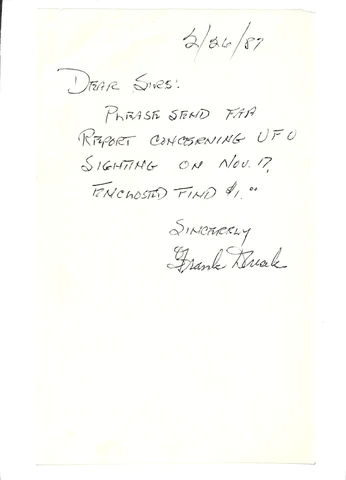 2/26/87
DEAR SIRS:
PLEASE SEND FAA
REPORT CONCERNING UFO
SIGHTING ON NOV. 17,
ENCLOSED FIND $1.00
SINCERELY
Frank